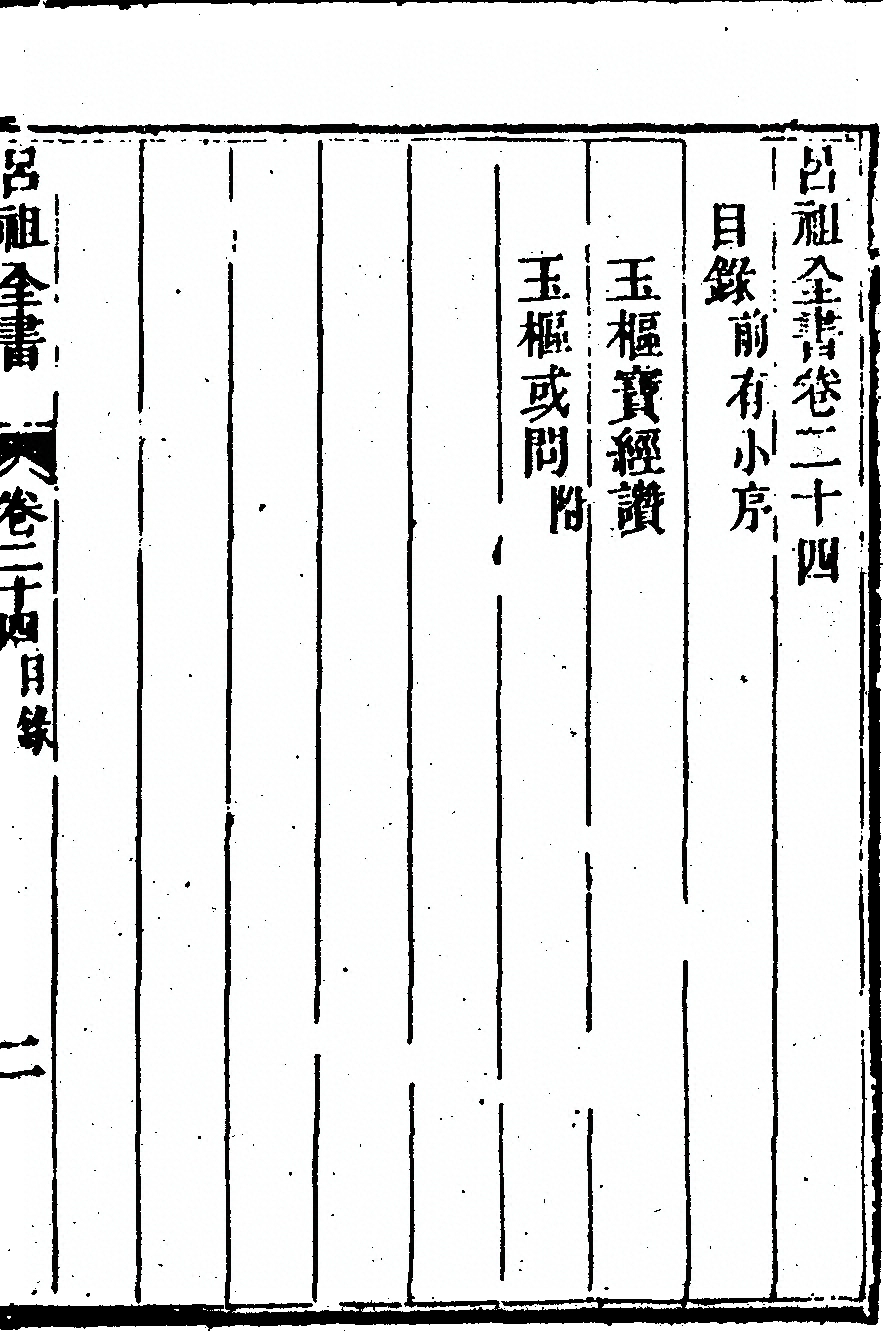 呂祖全書卷二十四
目錄前有小序
玉樞寶經讚
玉樞或問附
呂祖全書 卷二十四目錄 二